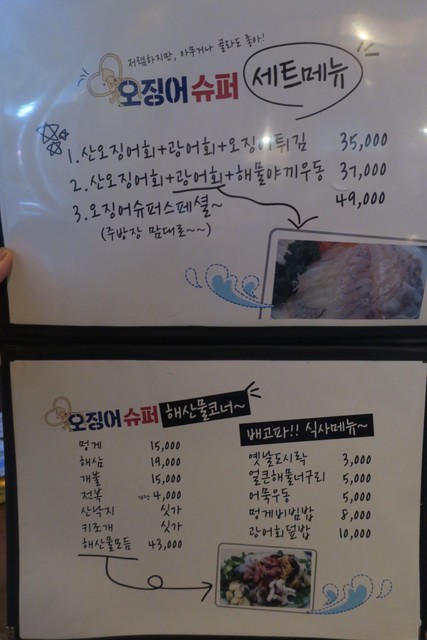 저렴하지만, 아무거나 골라도 좋아!
오징어슈퍼 세트메뉴
1. 산오징어회+광어회+오징어튀김 35,000
2. 산오징어회+광어회+해물야끼우동 37,000
3. 오징어슈퍼스페셜~ 49,000
(주방장 맘대로~~)
오징어슈퍼 해산물코너~
멍게 15,000
해삼 19,000
개불 15,000
전복 4,000
산낙지 싯가
키조개 싯가
해산물모듬 43,000
배고파!! 식사메뉴~
옛날도시락 3,000
얼큰해물너구리 5,000
어묵우동 5,000
멍게비빔밥 8,000
광어회덮밥 10,000